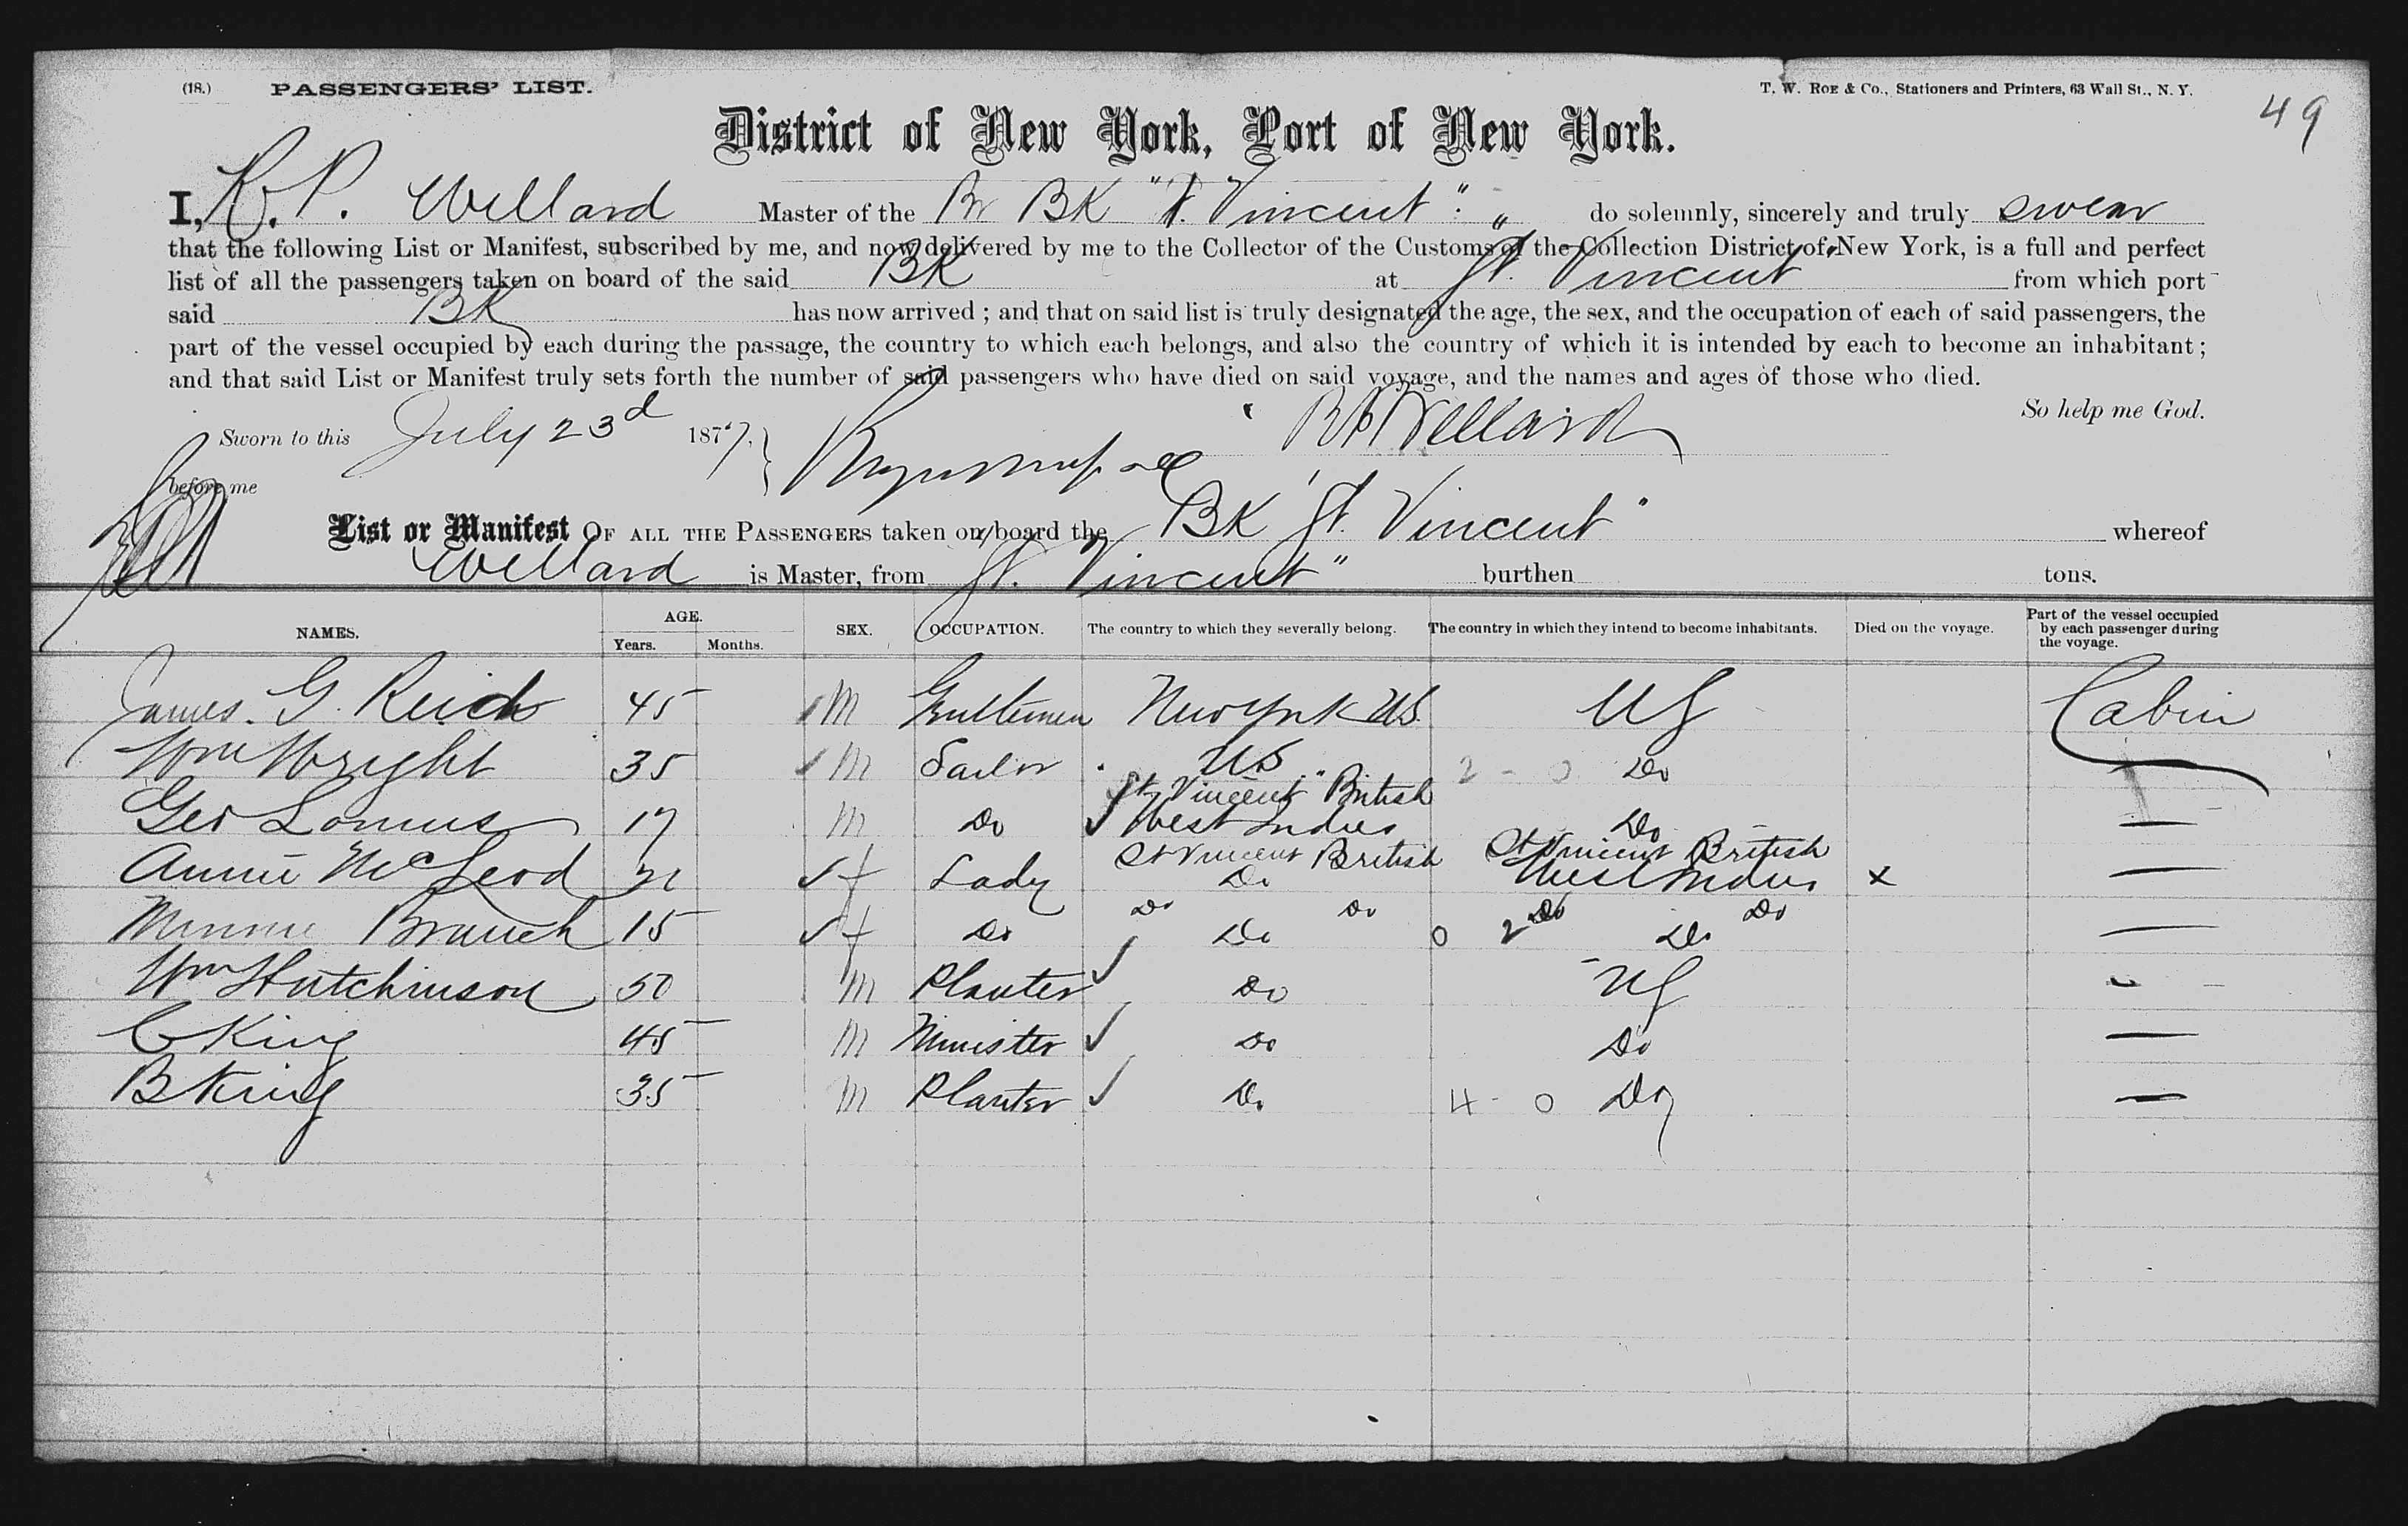 (18.) PASSENGERS' LIST. T. W. Roe & Co., Stationers and Printers, 63 Wall St., N. Y.
49
District of New York, Port of New York.
I, R. P. Wellard Master of the Br BK "St. Vincent" do solemnly, sincerely and truly swear
that the following List or Manifest, subscribed by me, and now delivered by me to the Collector of the Customs of the Collection District of New York, is a full and perfect
list of all the passengers taken on board of the said BK at St. Vincent from which port
said BK has now arrived ; and that on said list is truly designated the age, the sex, and the occupation of each of said passengers, the
part of the vessel occupied by each during the passage, the country to which each belongs, and also the country of which it is intended by each to become an inhabitant ;
and that said List or Manifest truly sets forth the number of said passengers who have died on said voyage, and the names and ages of those who died.
So help me God.
Sworn to this July 23d 1877. R P Wellard
before me
List or Manifest OF ALL THE PASSENGERS taken on board the BK "St. Vincent" whereof
Wellard is Master, from St. Vincent" burthen tons.
NAMES. AGE. Years. Months. SEX. OCCUPATION. The country to which they severally belong. The country in which they intend to become inhabitants. Died on the voyage. Part of the vessel occupied by each passenger during the voyage.
James. G. Reid 45 M Gentlemen New York U.S. US Cabin
Wm Wright 35 M Sailor US 2 - 0 Do
St Vincent British
Geo 17 M Do West Indies Do —
St Vincent British St Vincent British
Annie McLeod 21 f Lady Do West Indies x —
Do Do Do Do
Minnie Branch 15 f Do Do 0 2 Do —
Wm Hutchinson 50 M Planter Do US -
C King 45 M Minister Do Do —
B King 35 M Planter Do 4 - 0 Do —